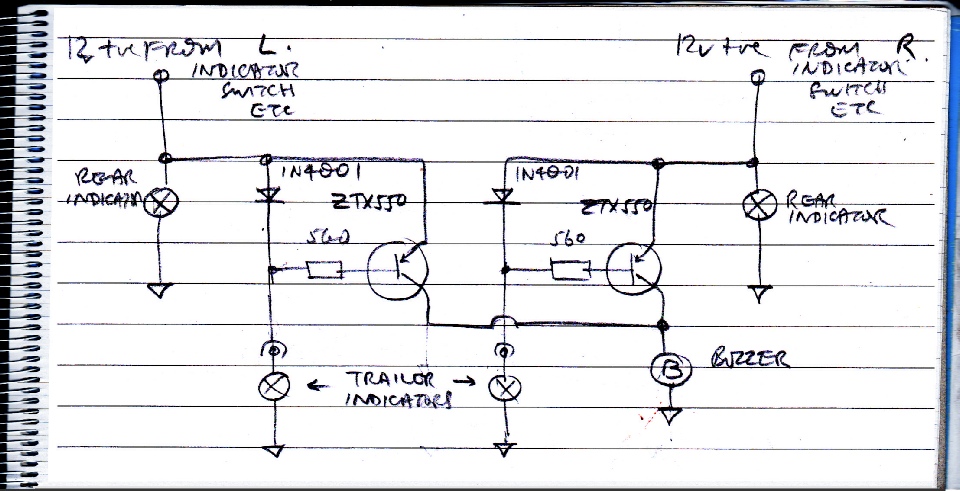 12v +ve FROM L.
INDICATOR
SWITCH
ETC
12v +ve FROM R.
INDICATOR
SWITCH
ETC
1N4001
1N4001
REAR
INDICATOR
ZTX550
ZTX550
REAR
INDICATOR
560
560
B
BUZZER
← TRAILOR →
INDICATORS